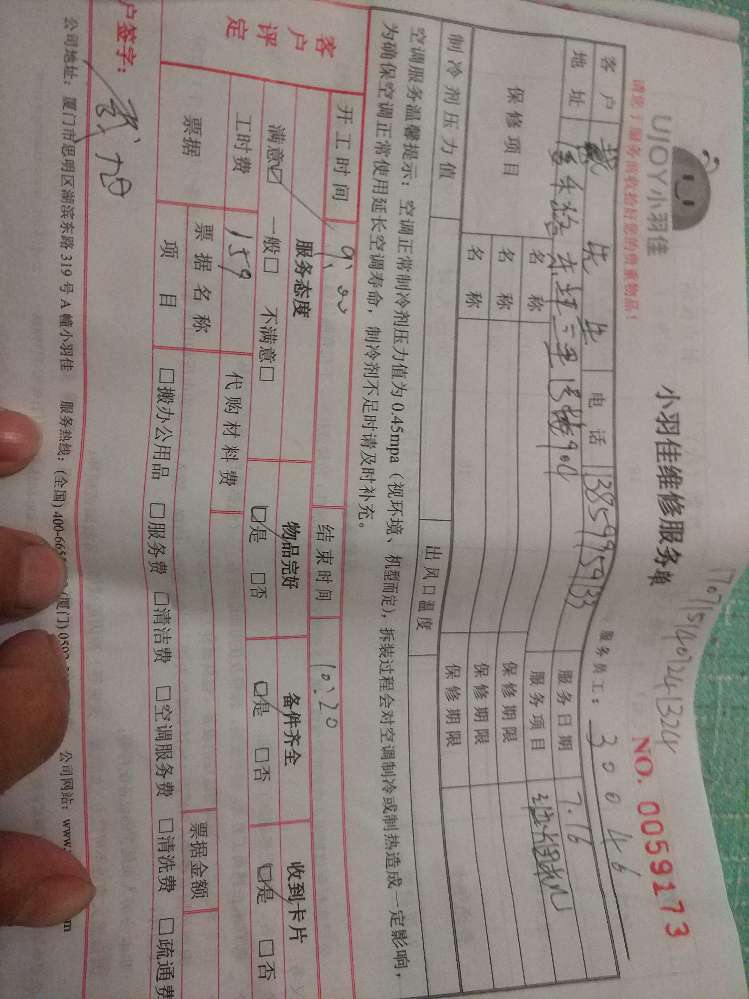 UJOY小羽佳
小羽佳维修服务单
NO. 0059173
请您于服务前收拾好您的贵重物品!
服务员工: 30046
客户 戴先生 电话 13859959133 服务日期 7.16
地址 904 服务项目
保修项目 名称 保修期限
名称 保修期限
名称 保修期限
制冷剂压力值 出风口温度
空调服务温馨提示: 空调正常制冷剂压力值为 0.45mpa (视环境、机型而定), 拆装过程会对空调制冷或制热造成一定影响,
为确保空调正常使用延长空调寿命, 制冷剂不足时请及时补充。
开工时间 9:00 结束时间 10:20
客户评定 服务态度 物品完好 备件齐全 收到卡片
满意☑ 一般□ 不满意□ ☑是 □否 ☑是 □否 ☑是 □否
工时费 159 代购材料费
票据 票据名称 票据金额
项目 □搬办公用品 □服务费 □清洁费 □空调服务费 □清洗费 □疏通费
户签字:
公司地址: 厦门市思明区湖滨东路 319 号 A 幢小羽佳 服务热线: (全国) 400-665 (厦门) 0592 公司网站: www.